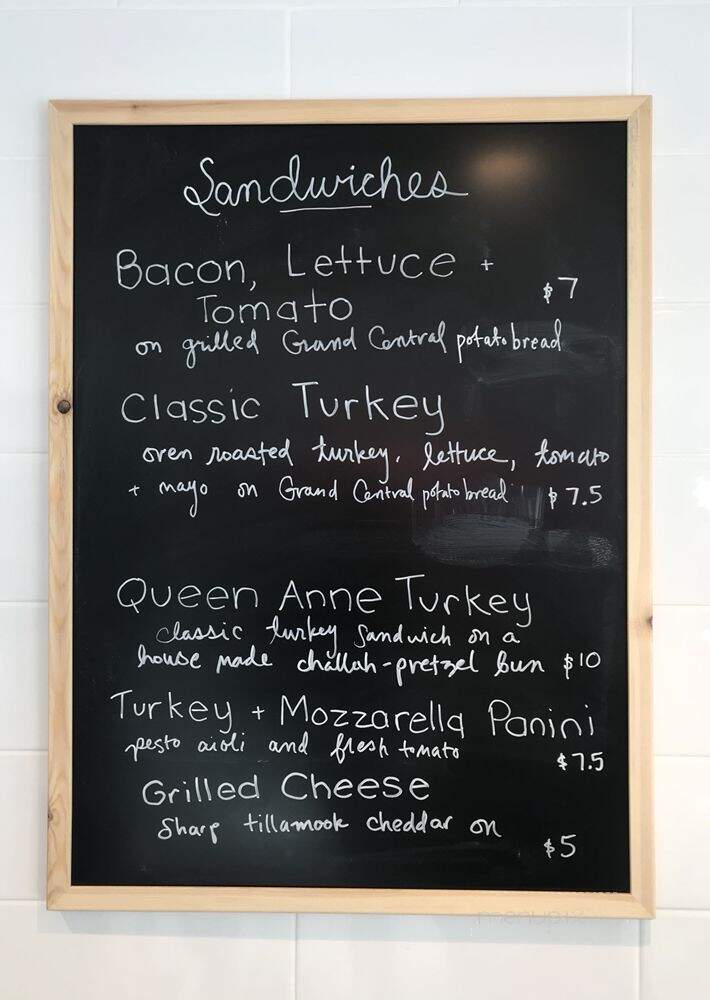 Sandwiches
Bacon, Lettuce +
Tomato
$7
on grilled Grand Central potato bread
Classic Turkey
oven roasted turkey, lettuce, tomato
+ mayo on Grand Central potato bread $7.5
Queen Anne Turkey
classic turkey sandwich on a
house made challah-pretzel bun $10
Turkey + Mozzarella Panini
pesto aioli and fresh tomato
$7.5
Grilled Cheese
Sharp tillamook cheddar on
$5